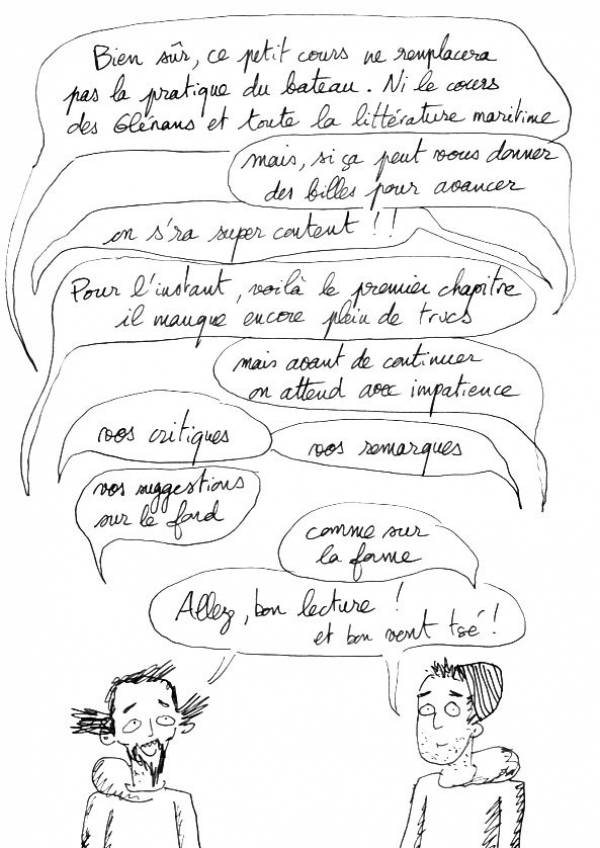 Bien sûr, ce petit cours ne remplacera
pas la pratique du bateau. Ni le cours
des Glénans et toute la littérature maritime
mais, si ça peut vous donner
des billes pour avancer
on s'ra super content !!
Pour l'instant, voilà le premier chapitre
il manque encore plein de trucs
mais avant de continuer
on attend avec impatience
vos critiques
vos remarques
vos suggestions
sur le fond
comme sur
la forme
Allez, bon lecture !
et bon vent tsé !